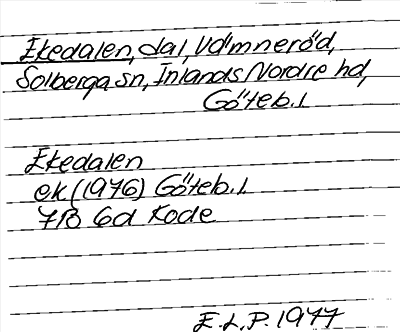 Ekedalen, dal, Vämneröd,
Solberga sn, Inlands Nordre hd,
Göteb. l
Ekedalen
ek (1976) Göteb. l
7B 6d Kode
E. L. P. 1977